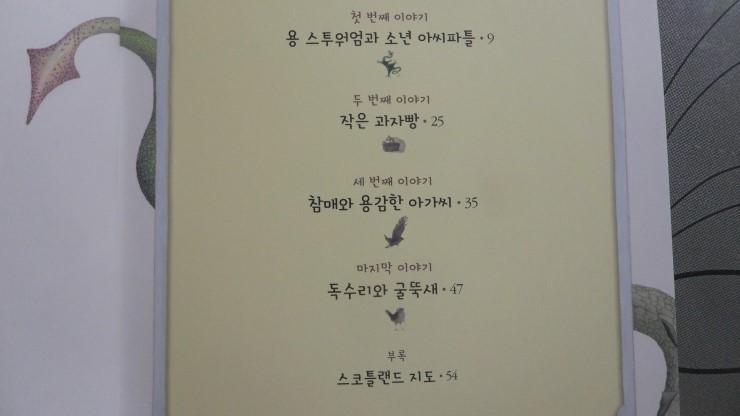 첫 번째 이야기
용 스투워엄과 소년 아씨파틀 • 9
두 번째 이야기
작은 과자빵 • 25
세 번째 이야기
참매와 용감한 아가씨 • 35
마지막 이야기
독수리와 굴뚝새 • 47
부록
스코틀랜드 지도 • 54